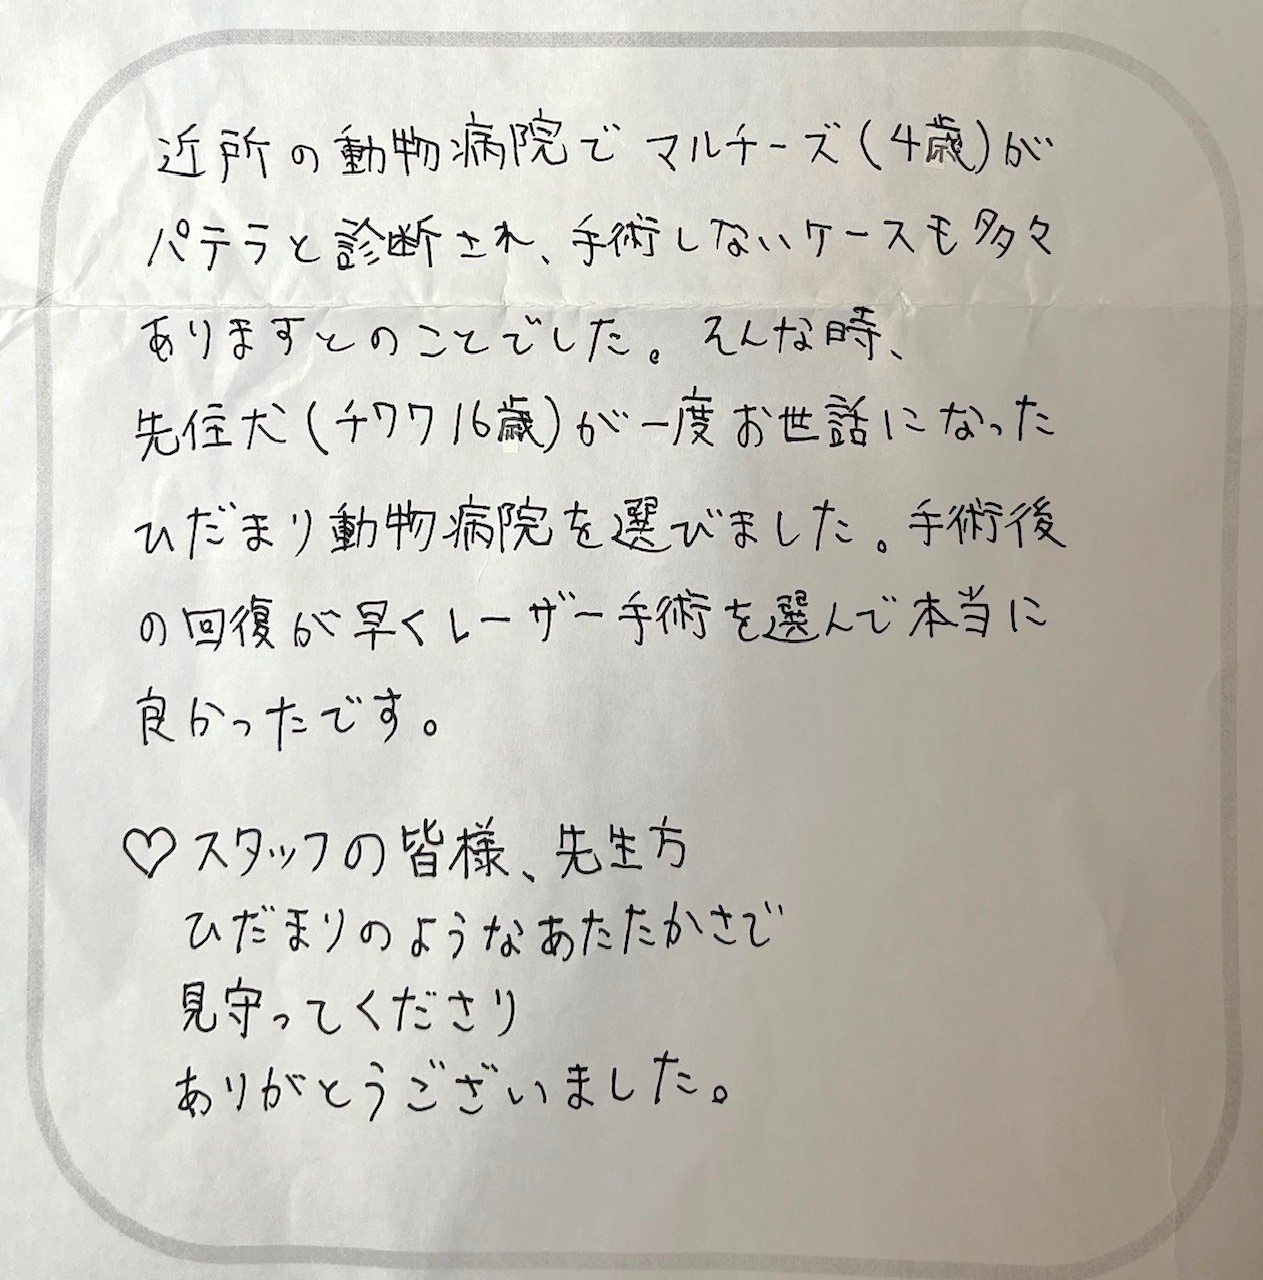 近所の動物病院でマルチーズ(4歳)が
パテラと診断され、手術しないケースも多々
ありますとのことでした。そんな時、
先住犬(チワワ16歳)が一度お世話になった
ひだまり動物病院を選びました。手術後
の回復が早くレーザー手術を選んで本当に
良かったです。
♡スタッフの皆様、先生方
ひだまりのようなあたたかさで
見守ってくださり
ありがとうございました。